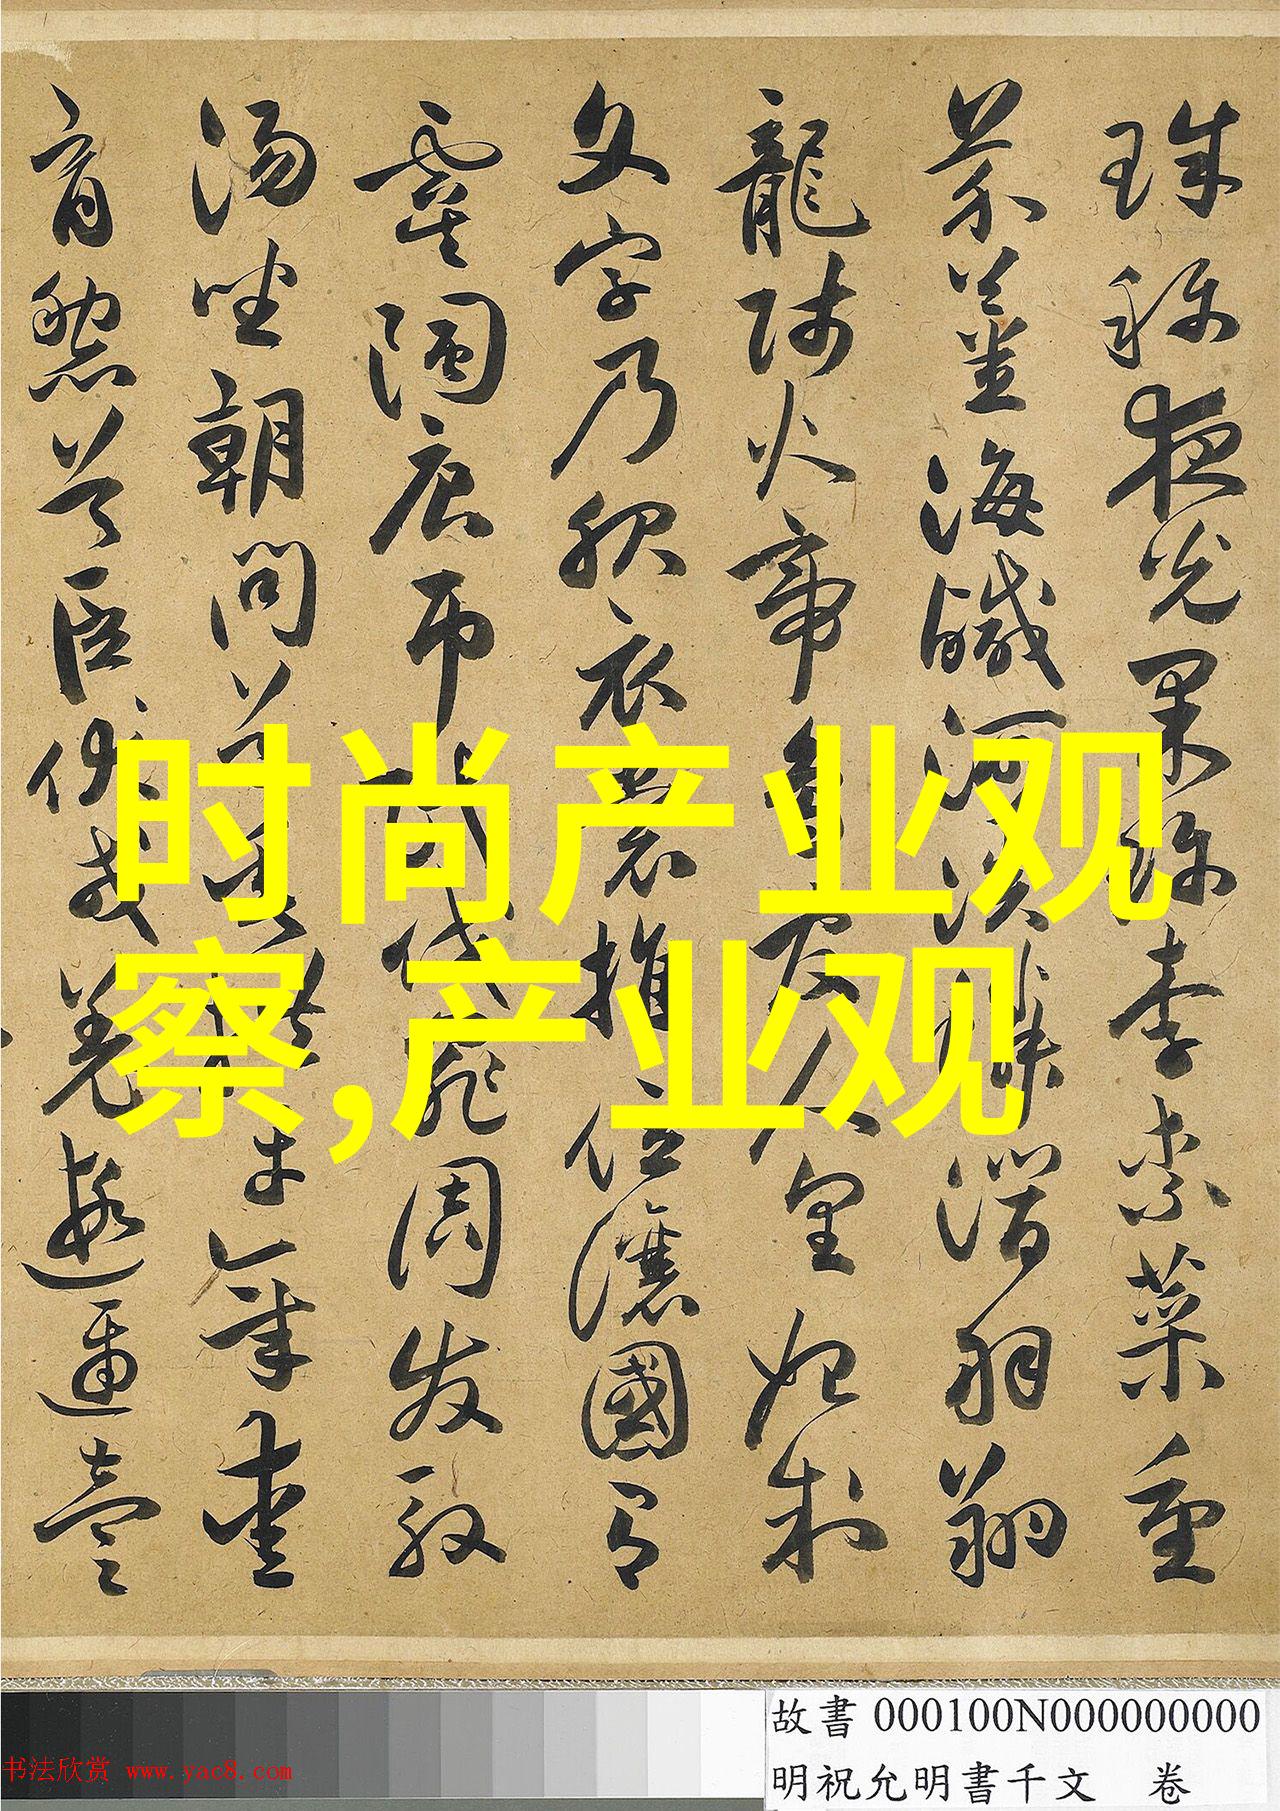 珠稱夜光果珍李柰菜重
芥薑海鹹河淡鱗潛羽翔
龍師火帝鳥官人皇始制
文字乃服衣裳推位讓國有
虞陶唐弔民伐罪周發殷
湯坐朝問道垂拱平章愛
育黎首臣伏戎羌遐邇壹
时尚产业观
察,产业观
故書 000100N000000000
明祝允明書千文 卷
书法欣赏 www.yac8.com